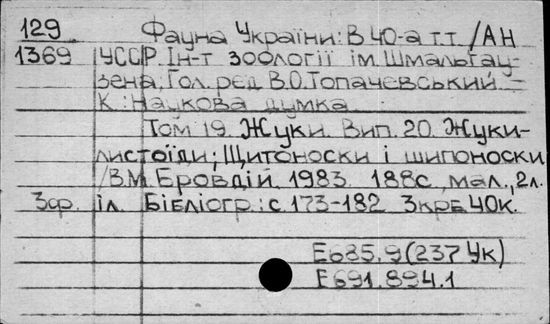 129 Фауна України: В 40-а т.т. /АН
1369 УССР. Ін-т зоології ім. Шмальгау-
зена; Гол. ред. В.О. Топачевський. -
К.: Наукова думка
Том 19. Жуки. Вип. 20. Жуки-
листоїди; Щитоноски і шипоноски
/В.М. Бровдій. 1983. 188с., мал., 2л.
іл. Бібліогр.: с. 173-182 3крб. 40к.
Е685.9(237Ук)
Е691.894.1